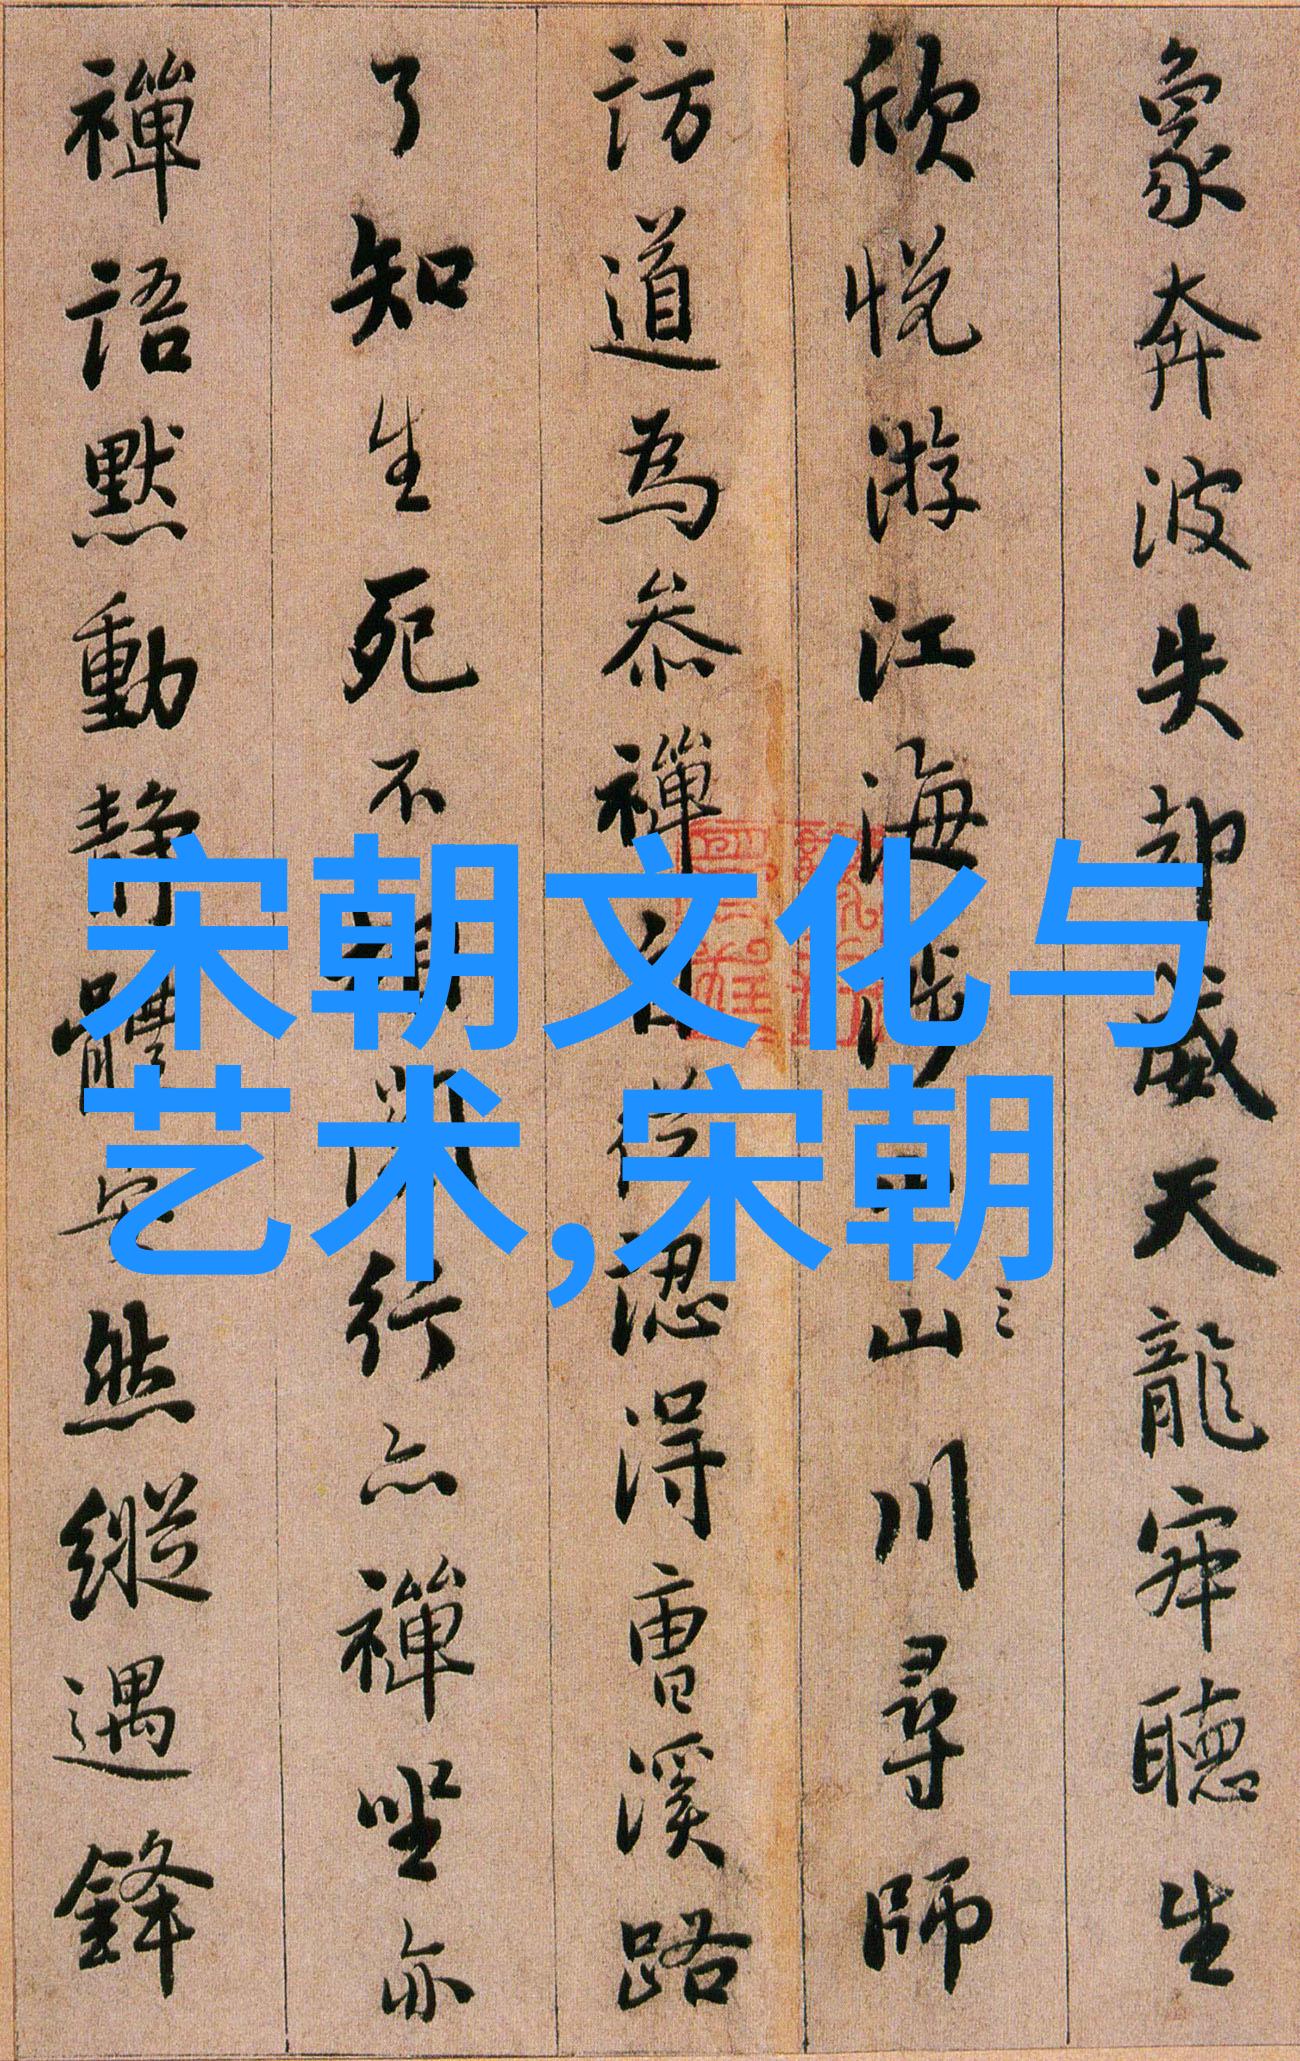 象奔波失却威天龍寂聽生
欣悅游江海涉山川尋師
訪道為叅禪自從認得曹溪路
了知生死不相關行亦禪坐亦
禪語默動靜體安然縱遇鋒
宋朝文化与
艺术,宋朝